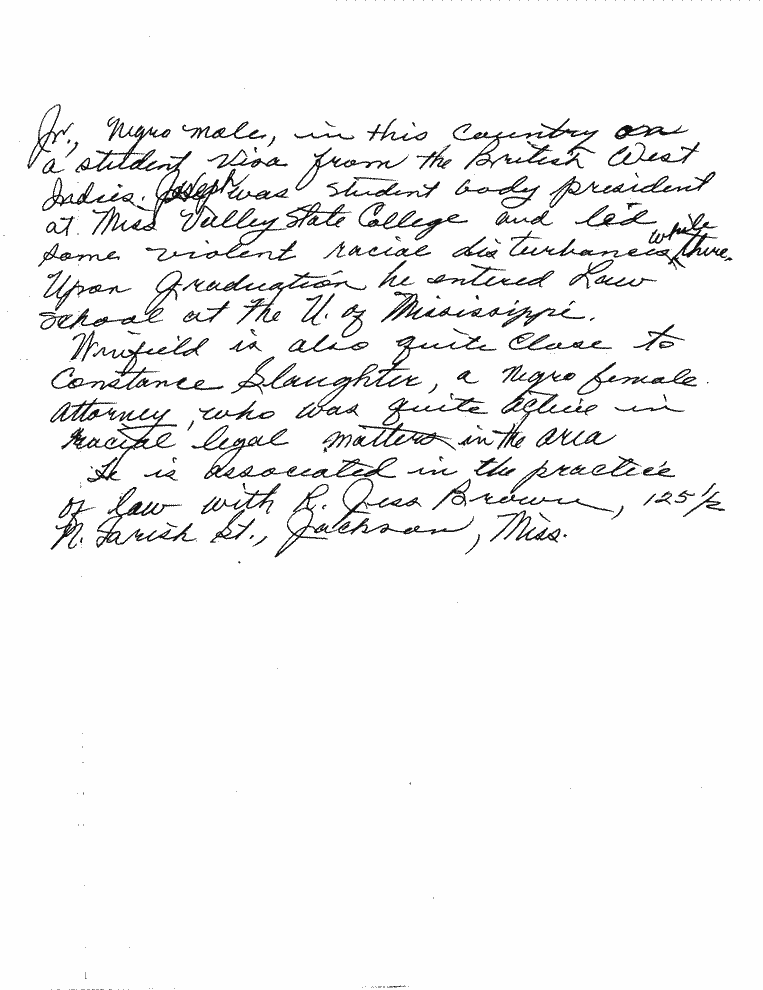 Jr., Negro male, in this country on
a student visa from the British West
Indies. Joseph was student body president
at Miss Valley State College and led
some violent racial disturbances while there.
Upon graduation he entered Law
School at the U. of Mississippi.
Winfield is also quite close to
Constance Slaughter, a Negro female
attorney, who was quite active in
racial legal matters in the area
He is associated in the practice
of law with R. Jess Brown, 125 1/2
N. Farish St., Jackson, Miss.